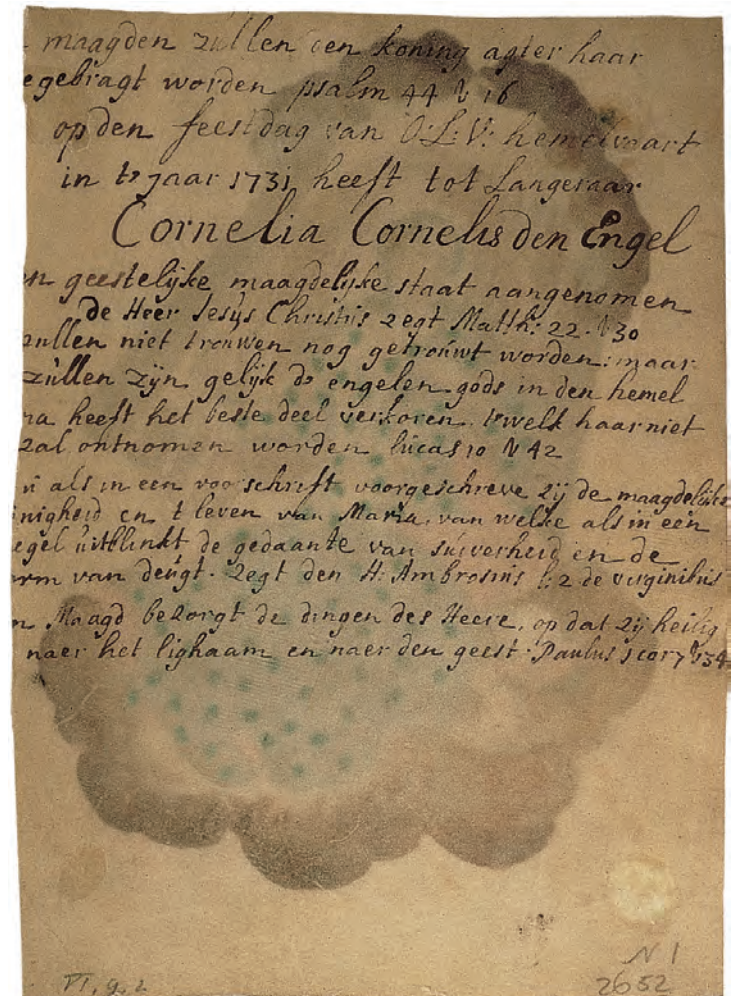 maagden zullen den koning agter haar
egebragt worden psalm 44 v 16
op den feestdag van O:L:V: hemelvaart
in t jaar 1731 heeft tot Langeraar
Cornelia Cornelis den Engel
en geestelijke maagdelijke staat aangenomen
de Heer Jesus Christus zegt Matth: 22. v 30
zullen niet trouwen nog getrouwt worden: maar
zullen zijn gelijk de engelen gods in den hemel
ria heeft het beste deel verkoren, twelk haar niet
zal ontnomen worden lucas 10 v 42
u als in een voorschrift voorgeschreve zij de maagdelijke
inigheid en t leven van Maria, van welke als in een
egel uitblinkt de gedaante van suiverheid en de
orm van deugt. Zegt den H: Ambrosius l: 2 de virginibus
n Maagd bezorgt de dingen des Heere, op dat zij heilig
naer het lighaam en naer den geest. Paulus 1 cor 7 v 34
VI, g, 2
N 1
2652